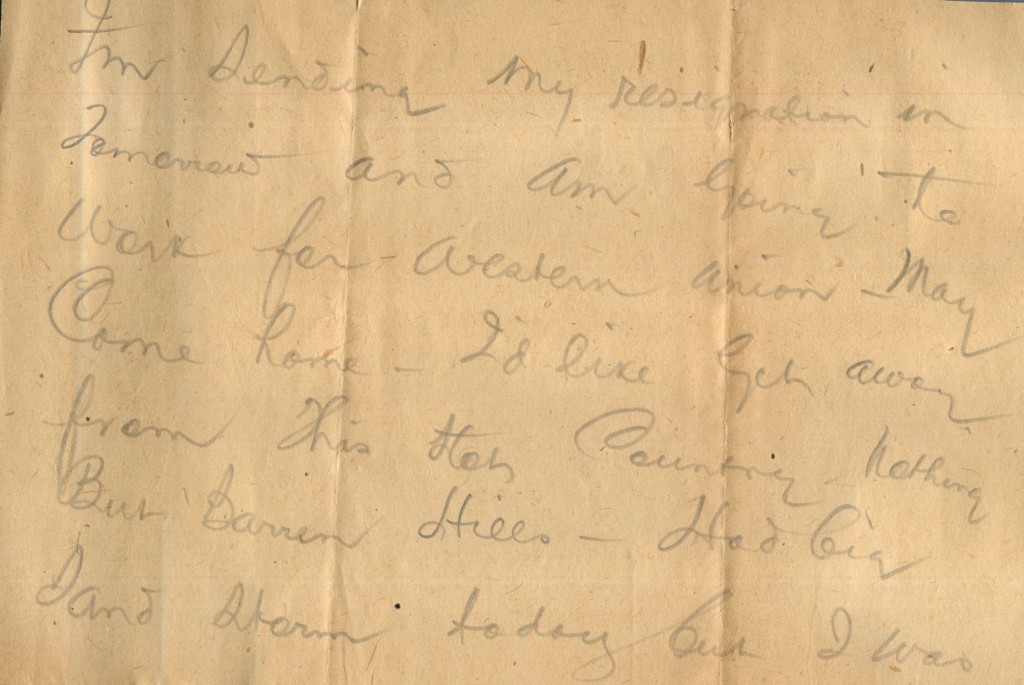 I'm Sending My resignation in
Tomorrow and Am Going to
Work for Western Union - May
Come home - I'd like Get away
from This Hot Country - Nothing
But Barren Hills - Had big
Sand Storm today but I was